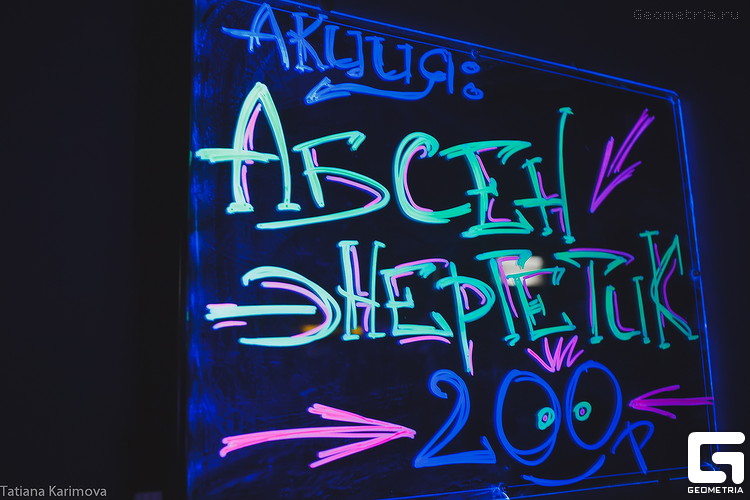 Geometria.ru
Акция:
АБСЕН
ЭНЕРГЕТИК
200р
Tatiana Karimova
GEOMETRIA